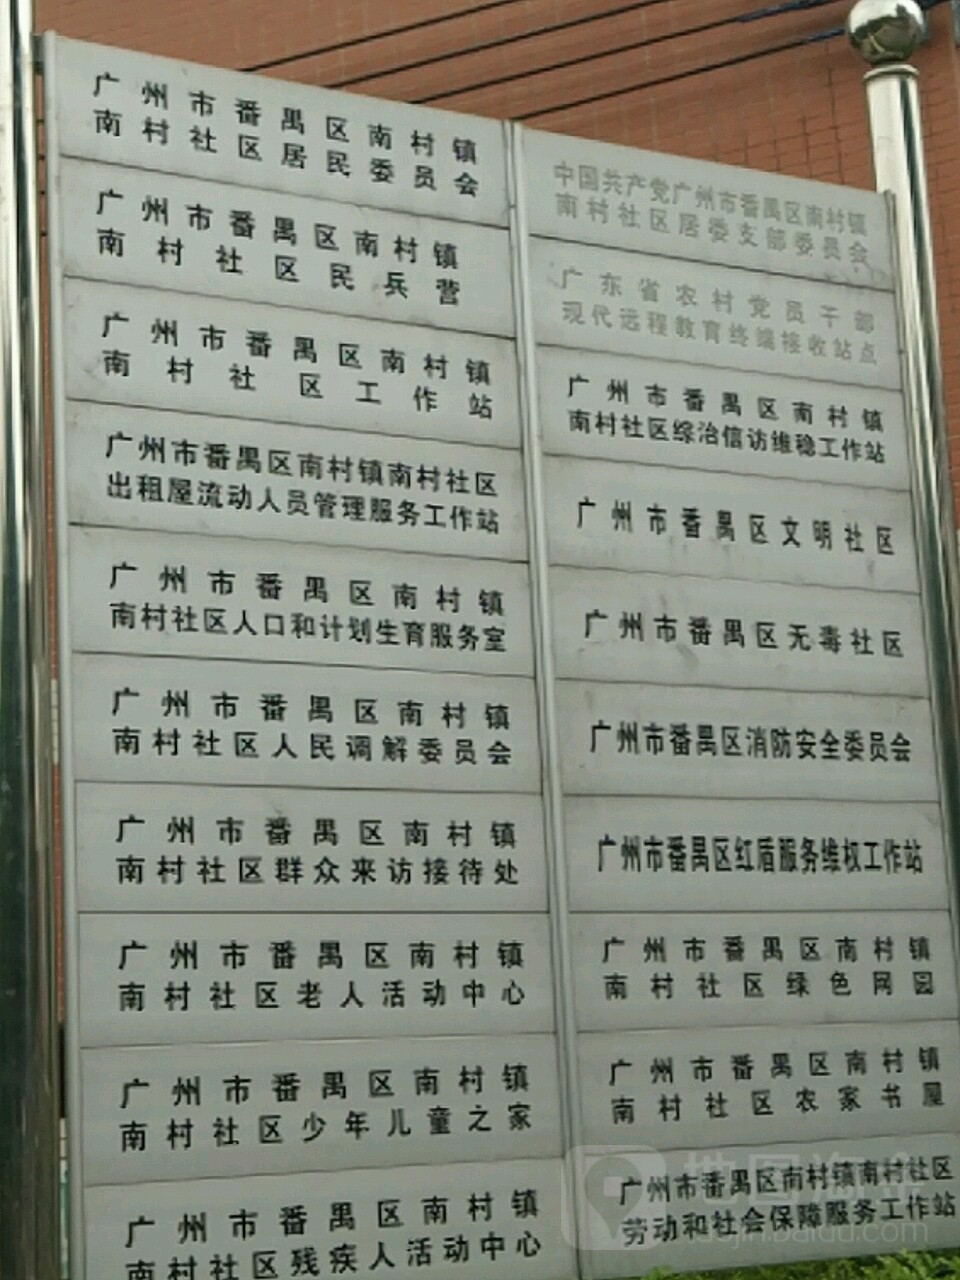 广州市番禺区南村镇
南村社区居民委员会
广州市番禺区南村镇
南村社区民兵营
广州市番禺区南村镇
南村社区工作站
广州市番禺区南村镇南村社区
出租屋流动人员管理服务工作站
广州市番禺区南村镇
南村社区人口和计划生育服务室
广州市番禺区南村镇
南村社区人民调解委员会
广州市番禺区南村镇
南村社区群众来访接待处
广州市番禺区南村镇
南村社区老人活动中心
广州市番禺区南村镇
南村社区少年儿童之家
广州市番禺区南村镇
南村社区残疾人活动中心
中国共产党广州市番禺区南村镇
南村社区居委支部委员会
广东省农村党员干部
现代远程教育终端接收站点
广州市番禺区南村镇
南村社区综治信访维稳工作站
广州市番禺区文明社区
广州市番禺区无毒社区
广州市番禺区消防安全委员会
广州市番禺区红盾服务维权工作站
广州市番禺区南村镇
南村社区绿色网园
广州市番禺区南村镇
南村社区农家书屋
广州市番禺区南村镇南村社区
劳动和社会保障服务工作站